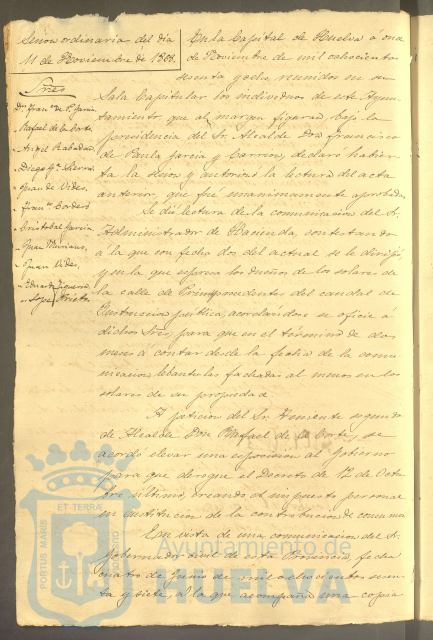 Sesion ordinaria del dia
11 de Noviembre de 1868.
Sres
Dn Franco de P. Garcia
Rafael de la Corte
Angel Rabadan
Diego
Juan de Vides
Franco Cordero
Cristobal Garcia
Juan Mariano
Juan Vides
Eduardo Figueroa
Lopez Prieto
En la Capital de Huelva á once
de Noviembre de mil ochocientos
sesenta y ocho, reunidos en su
Sala Capitular los individuos de este Ayun-
tamiento que al margen figuran, bajo la
presidencia del Sr. Alcalde Don Francisco
de Paula Garcia y declaró habier-
ta la sesion y autorizó la lectura del acta
anterior, que fué unanimemente aprobada.
Se dió lectura de la comunicacion del Sr.
Administrador de Hacienda, contestando
á la que con fecha dos del actual se le dirigió,
y en la que espresa los dueños de los solares de
la calle de procedentes del caudal de
Instruccion publica, acordandose se oficie á
dichos Sres para que en el término de dos
meses á contar desde la fecha de la comu-
nicacion lebanten las fachadas al menos en los
solares de su propiedad.
A peticion del Sr. Teniente segundo
de Alcalde Don Rafael de la Corte, se
acordó elevar una esposicion al Gobierno
para que derogue el Decreto de 12 de Octu-
bre ultimo, creando el impuesto personal
en sustitucion de la contribucion de consumos
Con vista de una comunicacion del Sr.
Gobernador civil de esta Provincia, fecha
cuatro de Junio de mil ochocientos sesen-
ta y siete, á la que acompaña una copia
PORTUS MARIS ET TERRÆ CUSTODIA
Ayuntamiento de
HUELVA